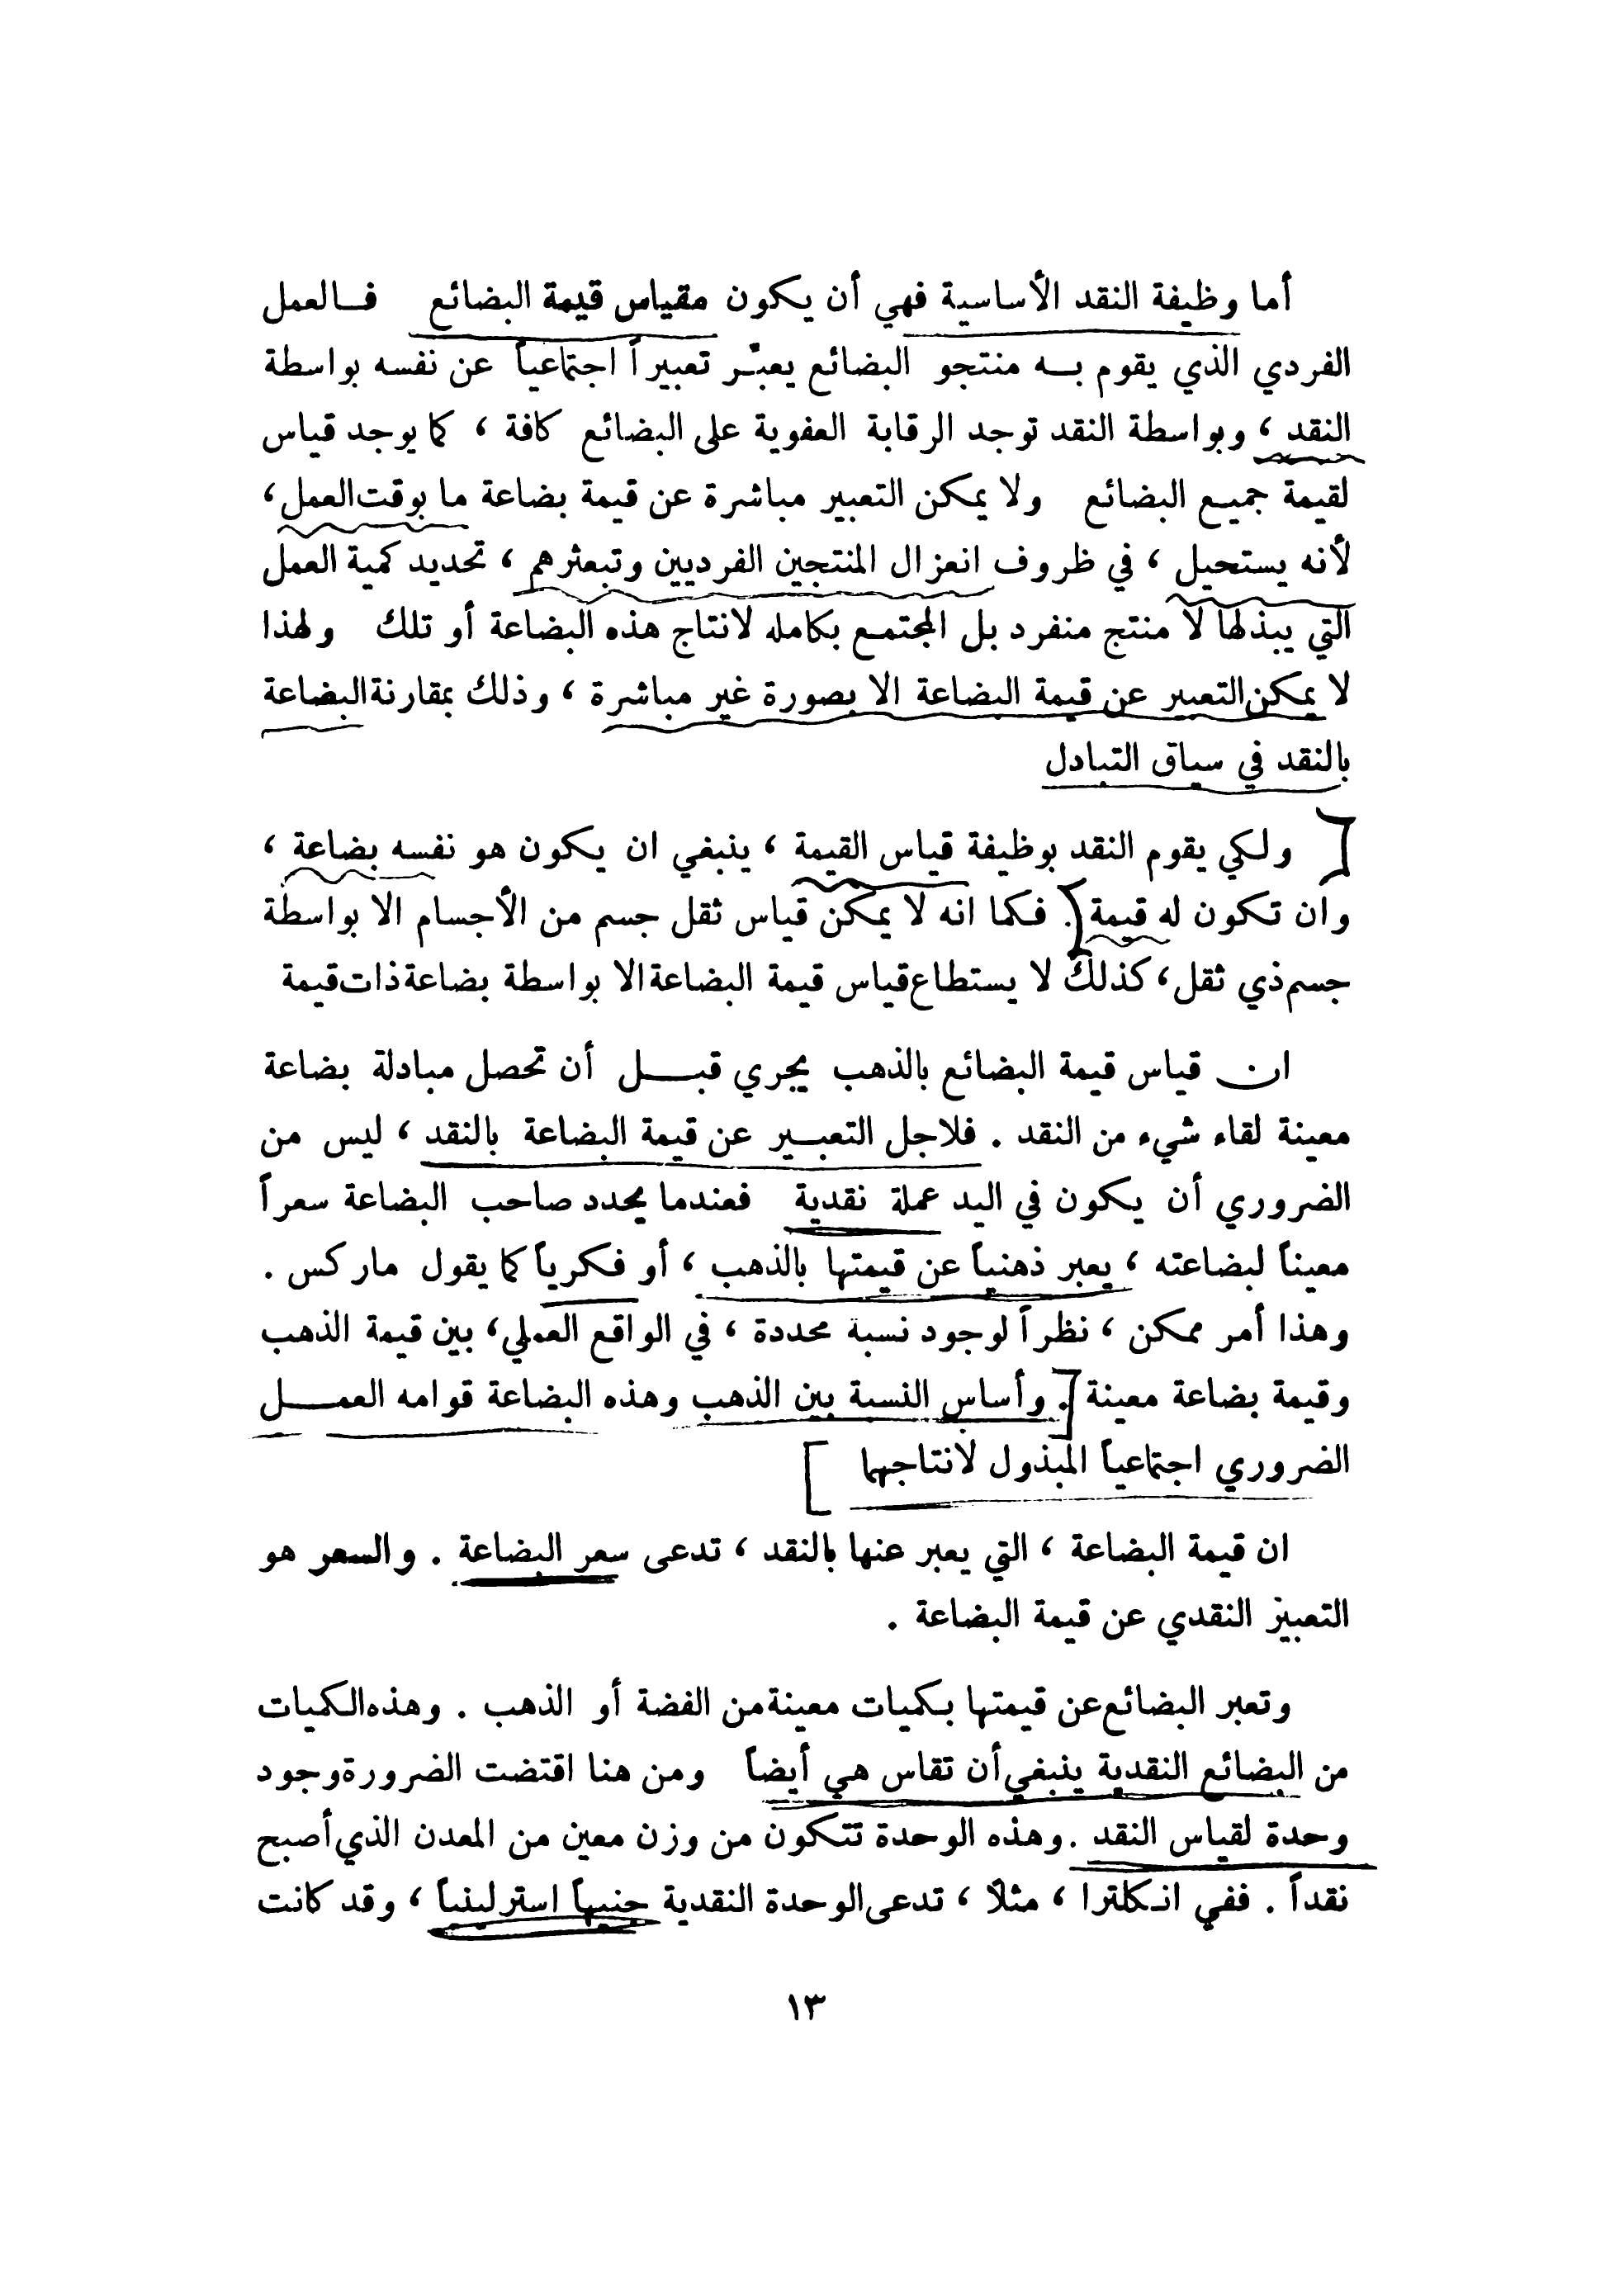 أما وظيفة النقد الأساسية فهي أن يكون مقياس قيمة البضائع فالعمل
الفردي الذي يقوم به منتجو البضائع يعبّر تعبيراً اجتماعياً عن نفسه بواسطة
النقد ، وبواسطة النقد توجد الرقابة العفوية على البضائع كافة ، كما يوجد قياس
لقيمة جميع البضائع ولا يمكن التعبير مباشرة عن قيمة بضاعة ما بوقت العمل ،
لأنه يستحيل ، في ظروف انعزال المنتجين الفرديين وتبعثرهم ، تحديد كمية العمل
التي يبذلها لا منتج منفرد بل المجتمع بكامله لانتاج هذه البضاعة أو تلك ولهذا
لا يمكن التعبير عن قيمة البضاعة الا بصورة غير مباشرة ، وذلك بمقارنة البضاعة
بالنقد في سياق التبادل
ولكي يقوم النقد بوظيفة قياس القيمة ، ينبغي ان يكون هو نفسه بضاعة ،
وان تكون له قيمة . فكما انه لا يمكن قياس ثقل جسم من الأجسام الا بواسطة
جسم ذي ثقل ، كذلك لا يستطاع قياس قيمة البضاعة الا بواسطة بضاعة ذات قيمة
ان قياس قيمة البضائع بالذهب يجري قبل أن تحصل مبادلة بضاعة
معينة لقاء شيء من النقد . فلاجل التعبير عن قيمة البضاعة بالنقد ، ليس من
الضروري أن يكون في اليد عملة نقدية فعندما يحدد صاحب البضاعة سعراً
معيناً لبضاعته ، يعبر ذهنياً عن قيمتها بالذهب ، أو فكرياً كما يقول ماركس .
وهذا أمر ممكن ، نظراً لوجود نسبة محددة ، في الواقع العملي ، بين قيمة الذهب
وقيمة بضاعة معينة . وأساس النسبة بين الذهب وهذه البضاعة قوامه العمل
الضروري اجتماعياً المبذول لانتاجهما
ان قيمة البضاعة ، التي يعبر عنها بالنقد ، تدعى سعر البضاعة . والسعر هو
التعبير النقدي عن قيمة البضاعة .
وتعبر البضائع عن قيمتها بكميات معينة من الفضة أو الذهب . وهذه الكميات
من البضائع النقدية ينبغي أن تقاس هي أيضاً ومن هنا اقتضت الضرورة وجود
وحدة لقياس النقد . وهذه الوحدة تتكون من وزن معين من المعدن الذي أصبح
نقداً . ففي انكلترا ، مثلاً ، تدعى الوحدة النقدية جنيهاً استرلينياً ، وقد كانت
١٣